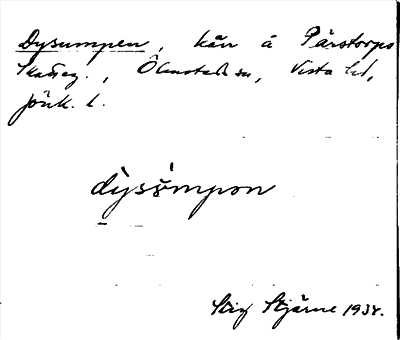 Dysumpen, kärr å Pärstorps
skatteg., Ölmstads sn, Vista hd,
Jönk. l.
dysumpon
Stig Stjärne 1934.